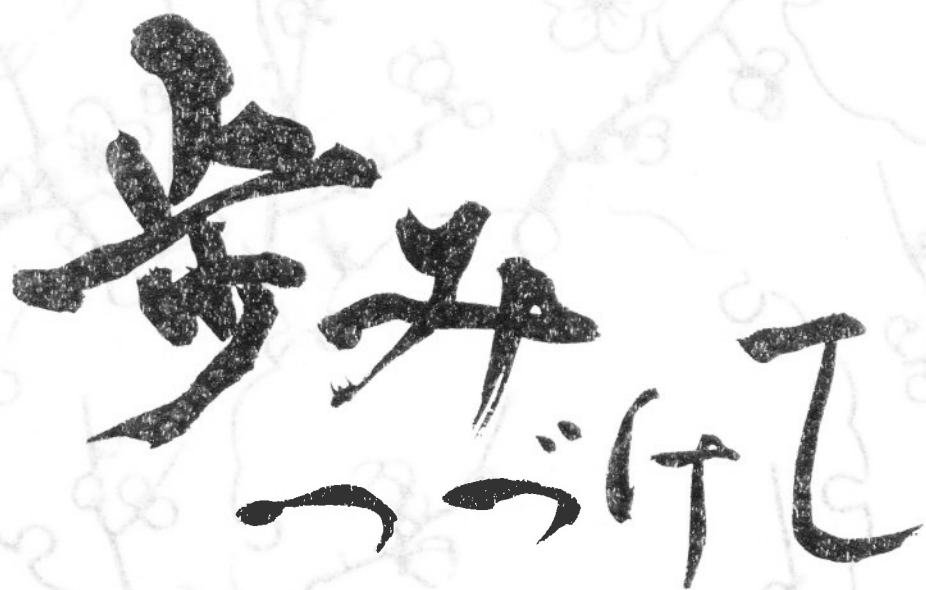 歩み
つづけて